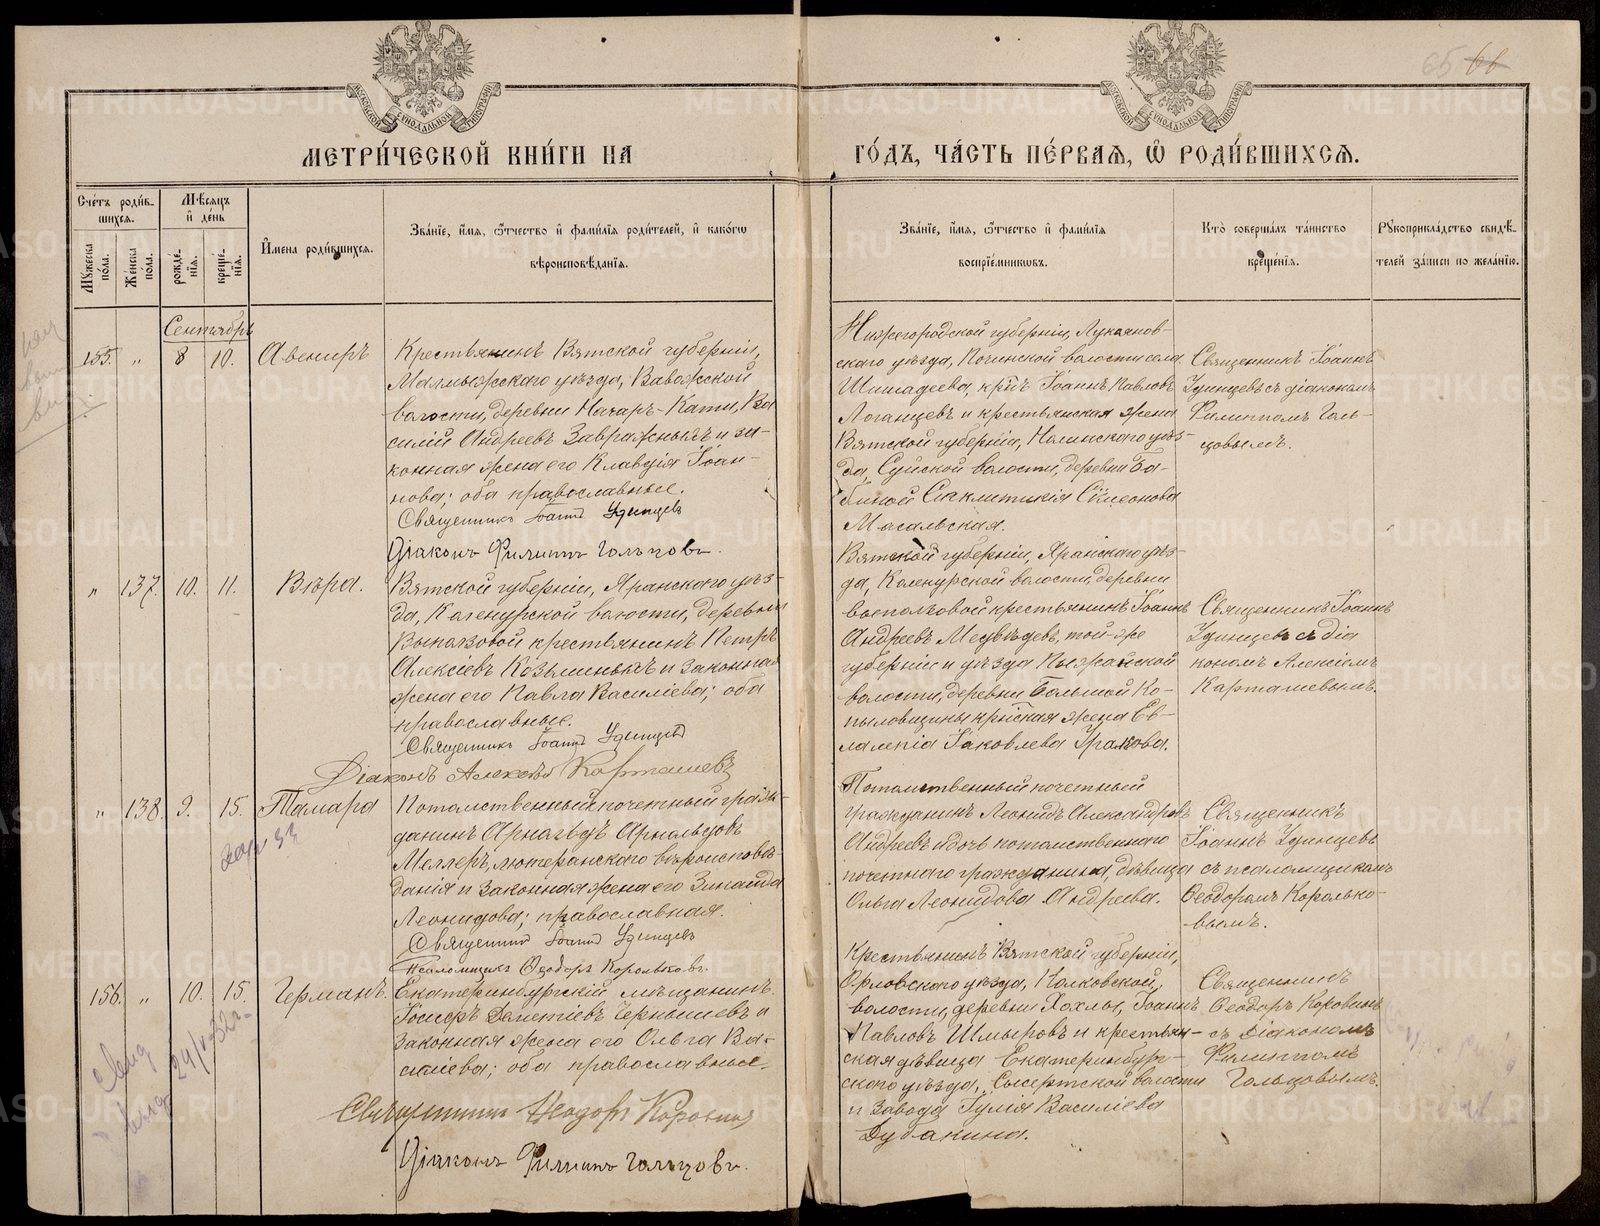 65 66
МЕТРИ́ЧЕСКОЙ КНИ́ГИ НА
ГО́ДЪ, ЧА́СТЬ ПЕ́РВАЯ, Ѽ РОДИ́ВШИХСЯ.
Сче́тъ роди́вшихся.
Мѣ́сяцъ и де́нь
Имена роди́вшихся.
Зва́нїе, и́мя, ѻ́тчество и фами́лїя роди́телей, и како́гѡ
вѣроисповѣ́данїя.
Мꙋ́жеска по́ла.
Же́нска по́ла.
рожде́нїя.
креще́нїя.
Зва́нїе, и́мя, ѻ́тчество и фами́лїя
воспрїе́мникѡвъ.
Кто̀ соверша́лъ та́инство
креще́нїя.
Рꙋкоприкла́дство свидѣ́-
телей за́писи по жела́нїю.
Сентябрь
155. " 8 10. Авениръ
Крестьянинъ Вятской губерніи,
Малмыжскаго уѣзда, Вавожской
волости, деревни Начаръ-Котьи, Ва
силій Андреевъ Завражныхъ и за-
конная жена его Клавдія Іоан-
нова; оба православные.
Священникъ Іоаннъ Удинцевъ
Діаконъ Филиппъ Гольцовъ.
Нижегородской губерніи, Лукоянов-
скаго уѣзда, Починской волости села
Шишадеева, кр. Іоаннъ Павловъ
Логанцевъ и крестьянская жена
Вятской губерніи, Нолинскаго уѣз-
да, Суйской волости, деревни Ба-
биной Синклитикія Симеонова
Масальская.
Священникъ Іоаннъ
Удинцевъ съ діакономъ
Филиппомъ Голь-
цовымъ.
" 137. 10. 11. Вѣра.
Вятской губерніи, Яранскаго уѣз-
да, Кагенурской волости, деревни
Выползовой крестьянинъ Петръ
Алексіевъ Козьминыхъ и законная
жена его Павла Василіева; оба
православные.
Священникъ Іоаннъ Удинцевъ
Діаконъ Алексѣй Карташевъ
Вятской губерніи, Яранскаго уѣз-
да, волости, деревни
Выползовой крестьянинъ Іоаннъ
Андреевъ Медвѣдевъ, той-же
губерніи и уѣзда
волости, деревни Большой Ко-
пыловщины жена Ев-
лампія Іаковлева Уракова.
Священникъ Іоаннъ
Удинцевъ съ діа
кономъ Алексіемъ
Карташевымъ.
" 138 9. 15. Тамара
Потомственный почетный граж-
данинъ Арнольдъ Арнольдовъ
Меллеръ, лютеранскаго вѣроисповѣ-
данія и законная жена его Зинаида
Леонидова; православная.
Священникъ Іоаннъ Удинцевъ
Псаломщикъ Ѳеодоръ Корольковъ.
Потомственный почетный
гражданинъ Леонидъ Александровъ
Андреевъ и дочь потомственнаго
почетнаго гражданина, дѣвица
Ольга Леонидова Андреева.
Священникъ
Іоаннъ Удинцевъ
съ псаломщикомъ
Ѳеодоромъ Королько-
вымъ.
156. " 10. 15. Германъ.
Екатеринбургскій мѣщанинъ
Іосифъ Дементіевъ Чернышевъ и
законная жена его Ольга Ва-
силіева; оба православные.
Священникъ Ѳеодоръ Коровинъ
Діаконъ Филиппъ Гольцовъ.
Крестьянинъ Вятской губерніи,
Орловскаго уѣзда,
волости, деревни Хохлы, Іоаннъ
Павловъ Шмыровъ и крестьян-
ская дѣвица Екатеринбург-
скаго уѣзда, Сысертской волости
и завода Іулія Василіева
Дубакина.
Священникъ
Ѳеодоръ Коровинъ
съ діакономъ
Филиппомъ
Гольцовымъ.
METRIKI.GASO-URAL.RU